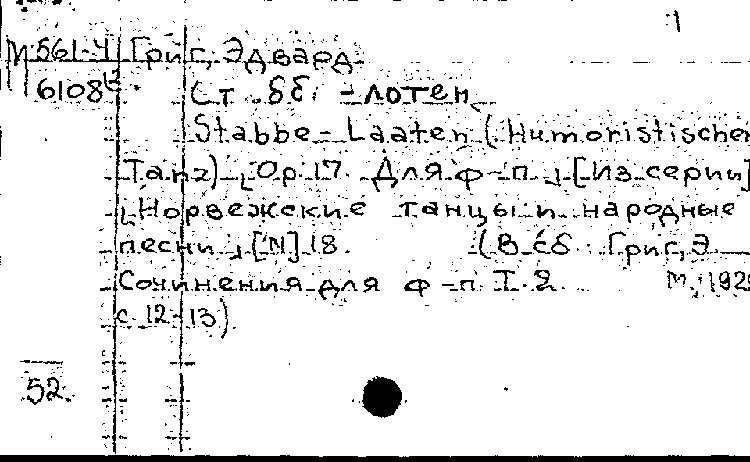 1
М 561-4 Григ, Эдвард
6108 Стабб-лотен
Stabbe-Laaten (Humoristischer
Tanz) Op. 17. Для ф-п. [Из серии]
Норвежские танцы и народные
песни [N] 18. (В сб. Григ, Э.
Сочинения для ф-п. Т. 2. М., 192
с. 12-13)
52.